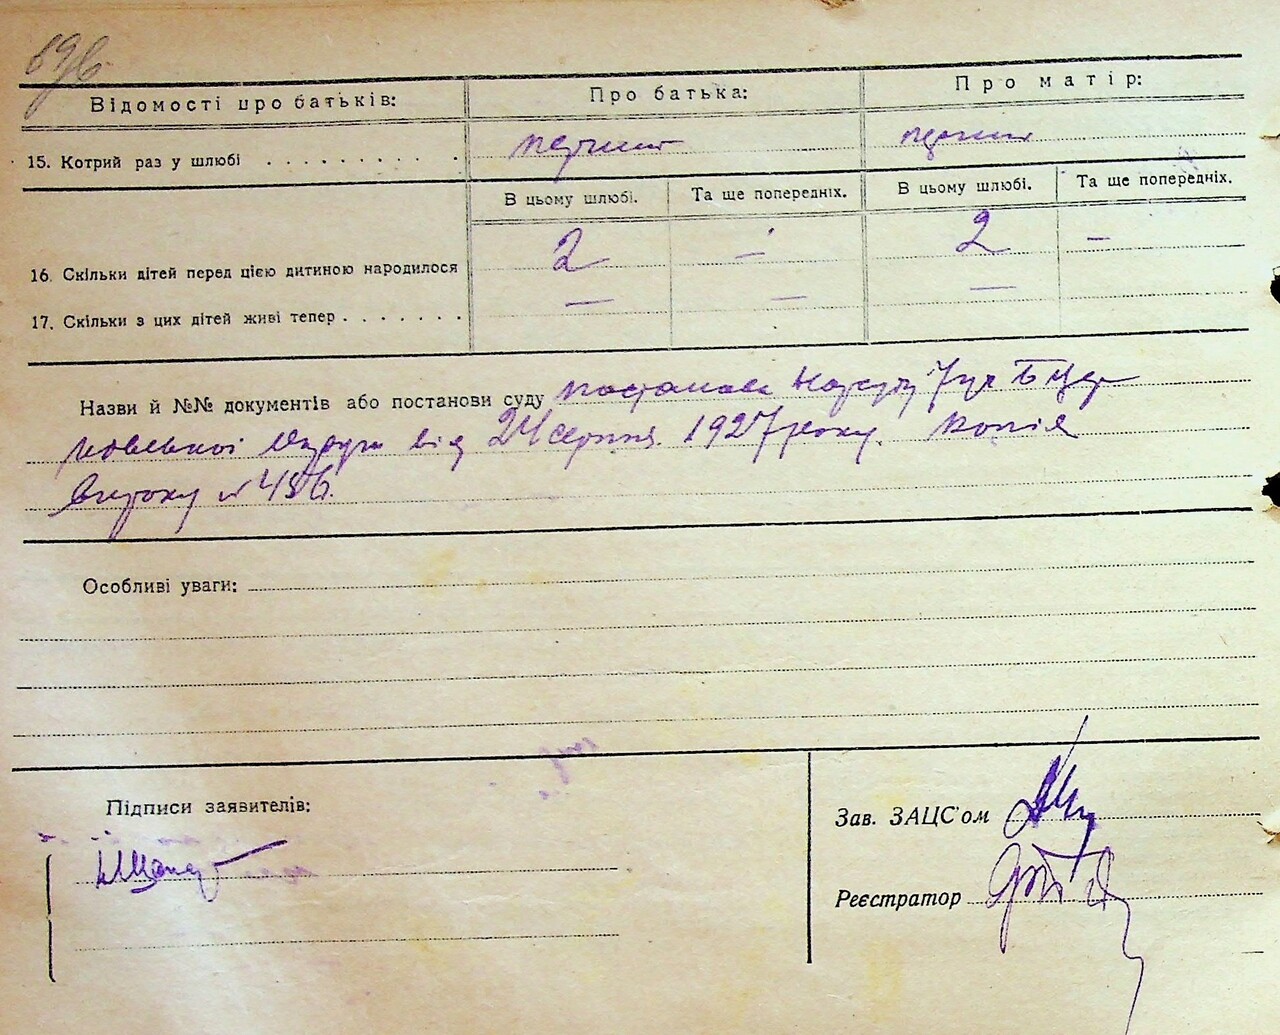 Відомості про батьків: Про батька: Про матір:
15. Котрий раз у шлюбі . . . . . . . . . . перший перший
В цьому шлюбі. Та ще попередніх. В цьому шлюбі. Та ще попередніх.
16. Скільки дітей перед цією дитиною народилося 2 — 2 —
17. Скільки з цих дітей живі тепер . . . . . . . — — —
Назви й №№ документів або постанови суду постанова Нарсуду
від 24 серпня 1927 року. Копія
витоку № 486.
Особливі уваги:
Підписи заявителів:
Зав. ЗАЦС'ом
Реєстратор